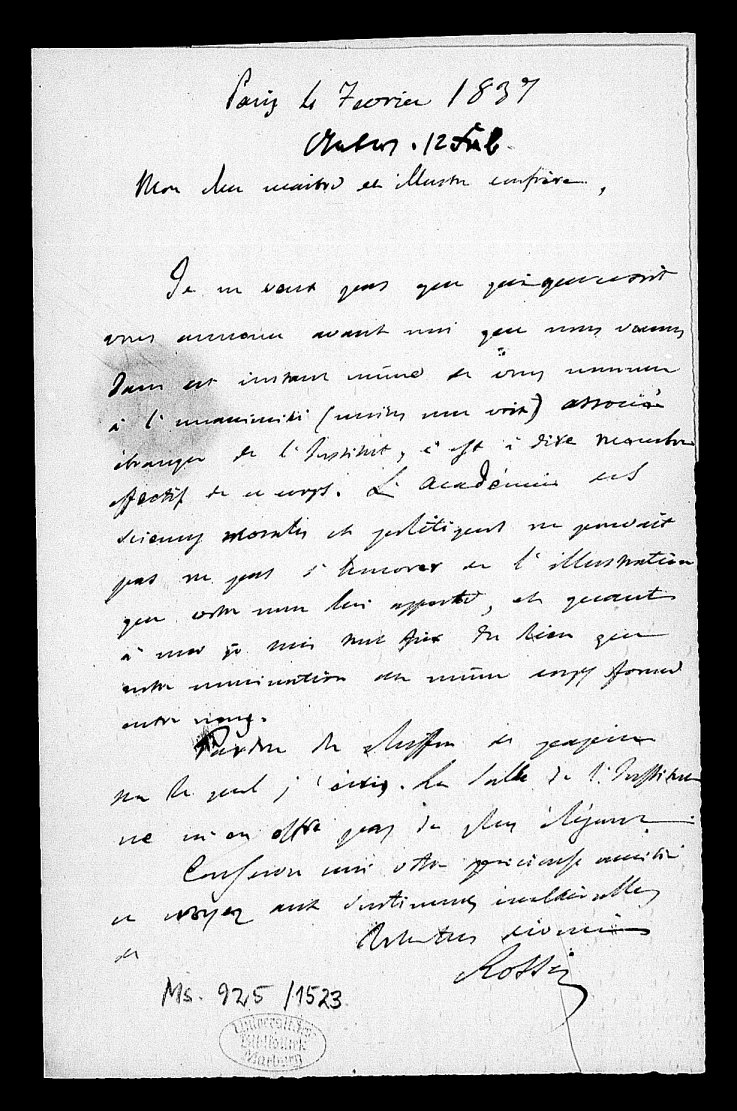 Paris le Fevrier 1837
12 Feb.
Mon cher maître et illustre confrère,
Je ne veux pas que qui que ce soit
vous annonce avant moi que nous venons
dans cet instant même de vous nommer
à l'unanimité (moins une voix) associé
étranger de l'Institut, c'est à dire membre
effectif de ce corps. L'Académie des
Sciences morales et politiques ne pouvait
pas ne pas s'honorer de l'illustration
que votre nom lui apporte, et quant
à moi je suis tout fier du lien que
votre nomination au même corps forme
entre nous.
Pardon du chiffon de papier
sur le quel j'écris. La salle de l'Institut
ne m'en offre pas de plus élégant.
Conservez moi votre précieuse amitié
et croyez aux sentimens inaltérables
de
Votre tout dévoué
Rossi
Ms. 925/1523
Universitäts-
Bibliothek
Marburg